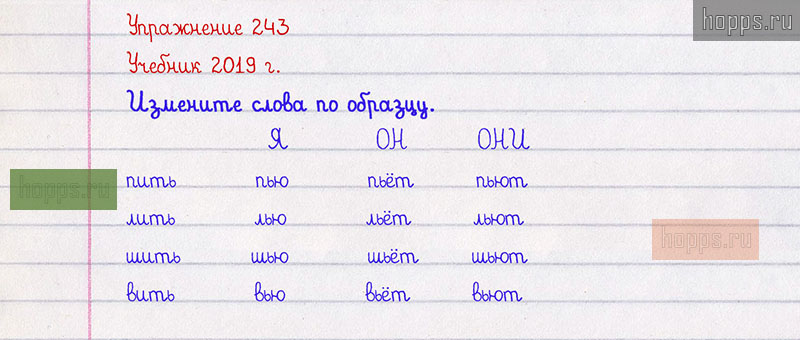 hopps.ru
Упражнение 243
Учебник 2019 г.
Измените слова по образцу.
Я ОН ОНИ
hopps.ru
пить пью пьёт пьют
лить лью льёт льют
hopps.ru
шить шью шьёт шьют
вить вью вьёт вьют